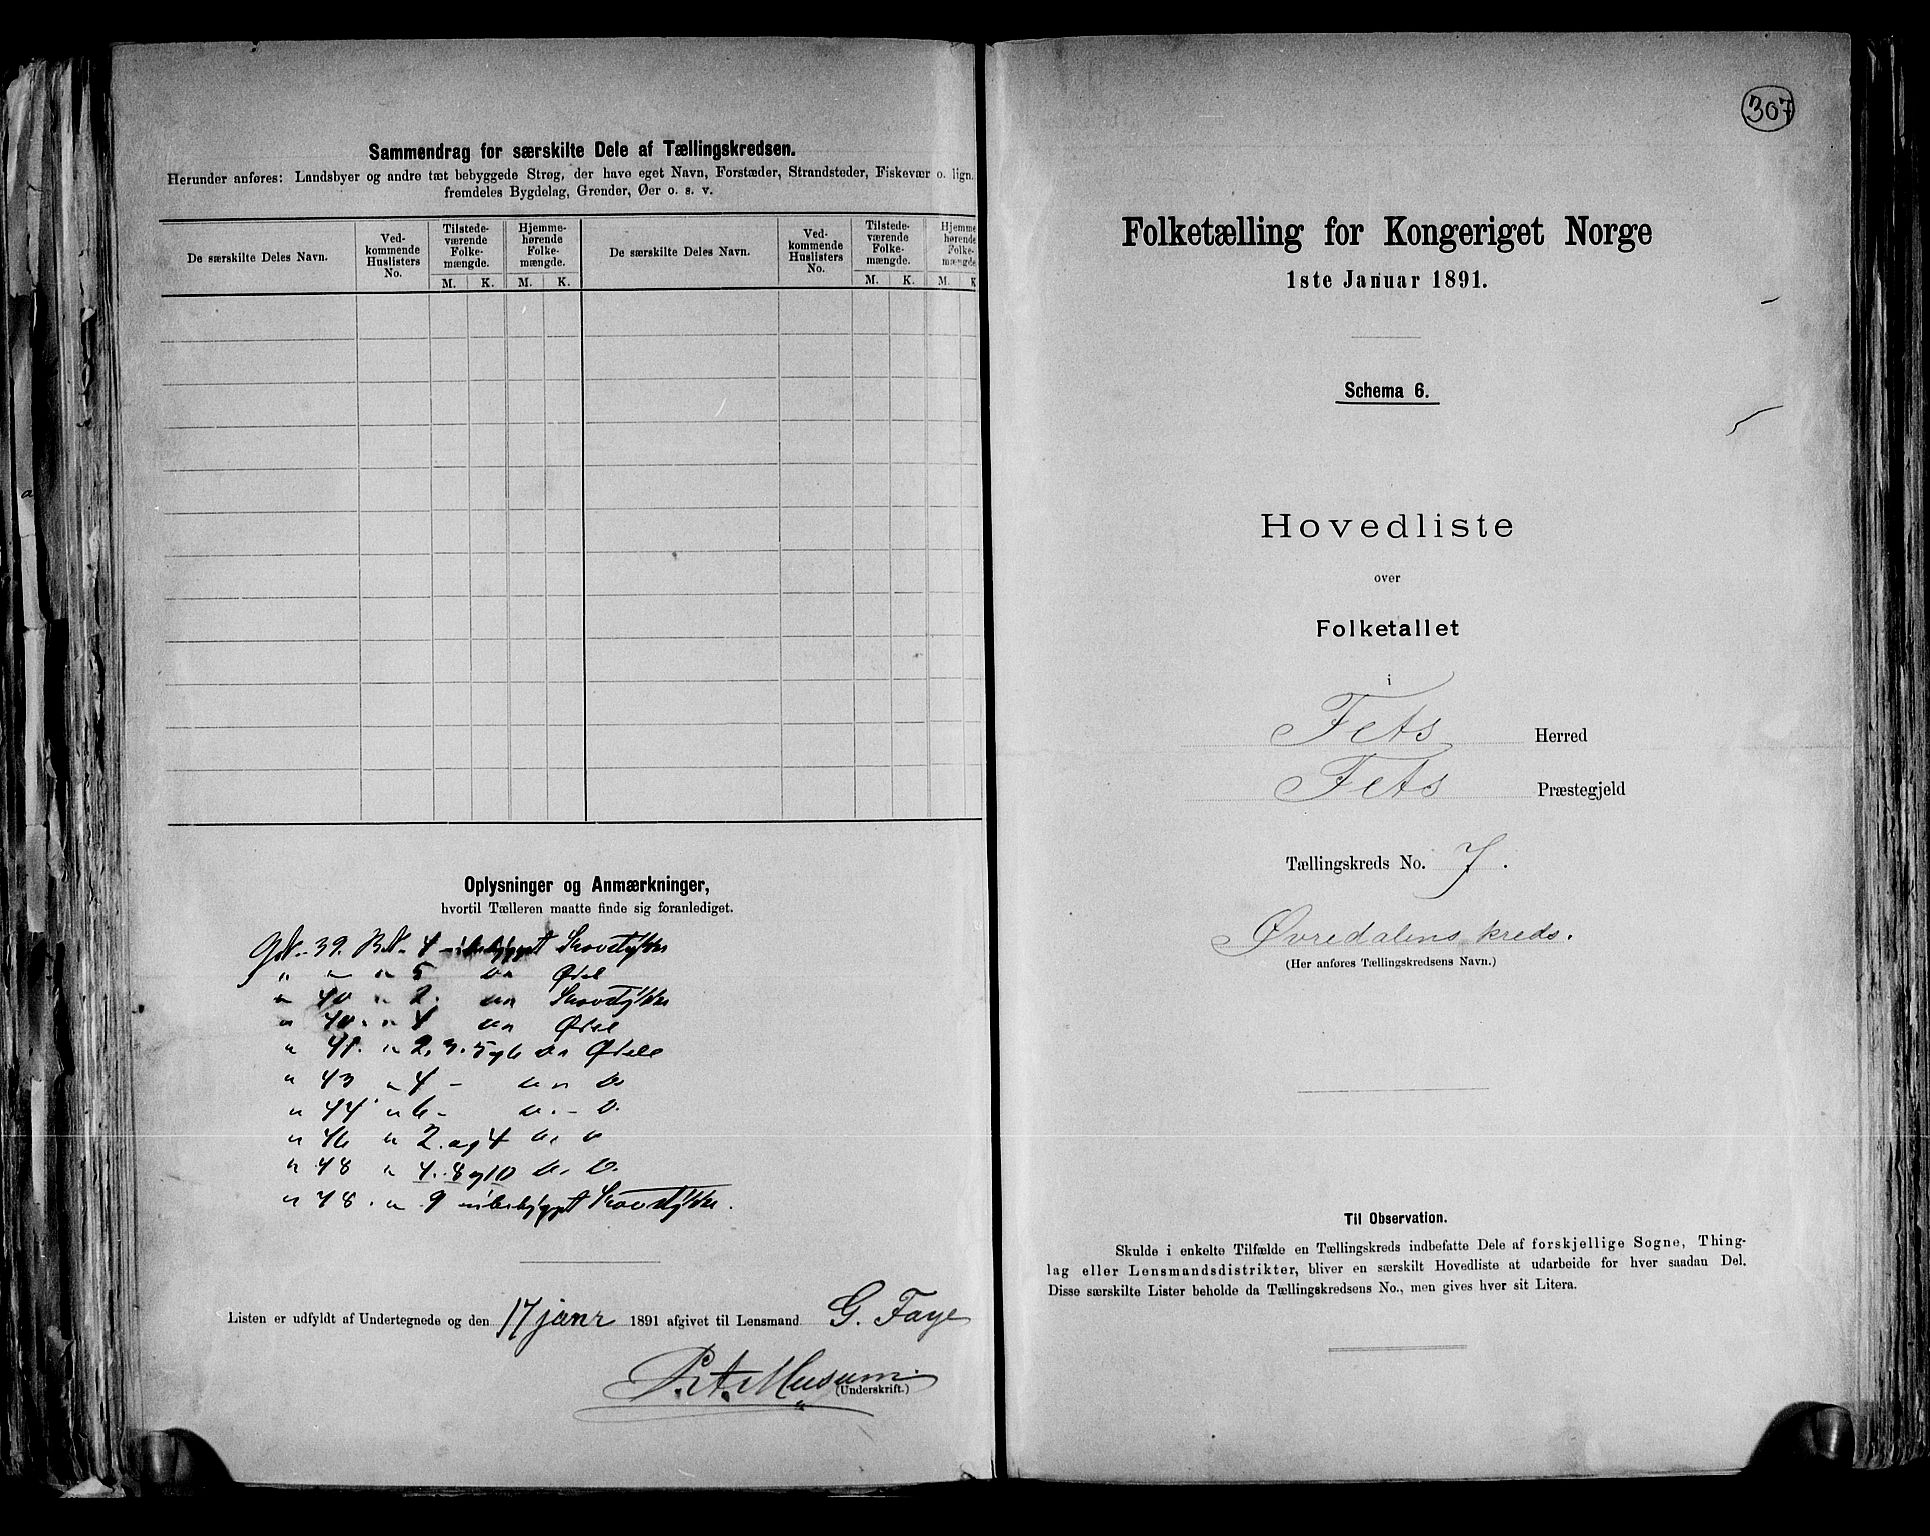 Sammendrag for særskilte Dele af Tællingskredsen.
Herunder anføres: Landsbyer og andre tæt bebyggede Strøg, der have eget Navn, Forstæder, Strandsteder, Fiskevær o. lign.
fremdeles Bygdelag, Grender, Øer o. s. v.
De særskilte Deles Navn. Ved-kommende Huslisters No. Tilstede-værende Folke-mængde. Hjemme-hørende Folke-mængde. De særskilte Deles Navn. Ved-kommende Huslisters No. Tilstede-værende Folke-mængde. Hjemme hørende Folke-mængde
M. K. M. K. M. K. M. K
Oplysninger og Anmærkninger,
hvortil Tælleren maatte finde sig foranlediget.
39. 4 ubebygget Skovstykke
" " " 5 Øde
" 40 " 2. Skovstykke
" 40. " 4 Øde
" 41. " 2. 3. 5 og 6 Øde
" 43 " 4 -
" 44 " 6 -
" 46 " 2. og 4
" 48 " 4. 8 og 10
" 48. " 9 ubebygget Skovstykke.
Listen er udfyldt af Undertegnede og den 17 janr 1891 afgivet til Lensmand G. Faye
P. A. Musum
(Underskrift.)
307
Folketælling for Kongeriget Norge
1ste Januar 1891.
Schema 6.
Hovedliste
over
Folketallet
i
Fets Herred
Fets Præstegjeld
Tællingskreds No. 7.
Øvredalens kreds.
(Her anføres Tællingskredsens Navn.)
Til Observation.
Skulde i enkelte Tilfælde en Tællingskreds indbefatte Dele af forskjellige Sogne, Thing-
lag eller Lensmandsdistrikter, bliver en særskilt Hovedliste at udarbeide for hver saadan Del.
Disse særskilte Lister beholde da Tællingskredsens No., men gives hver sit Litera.